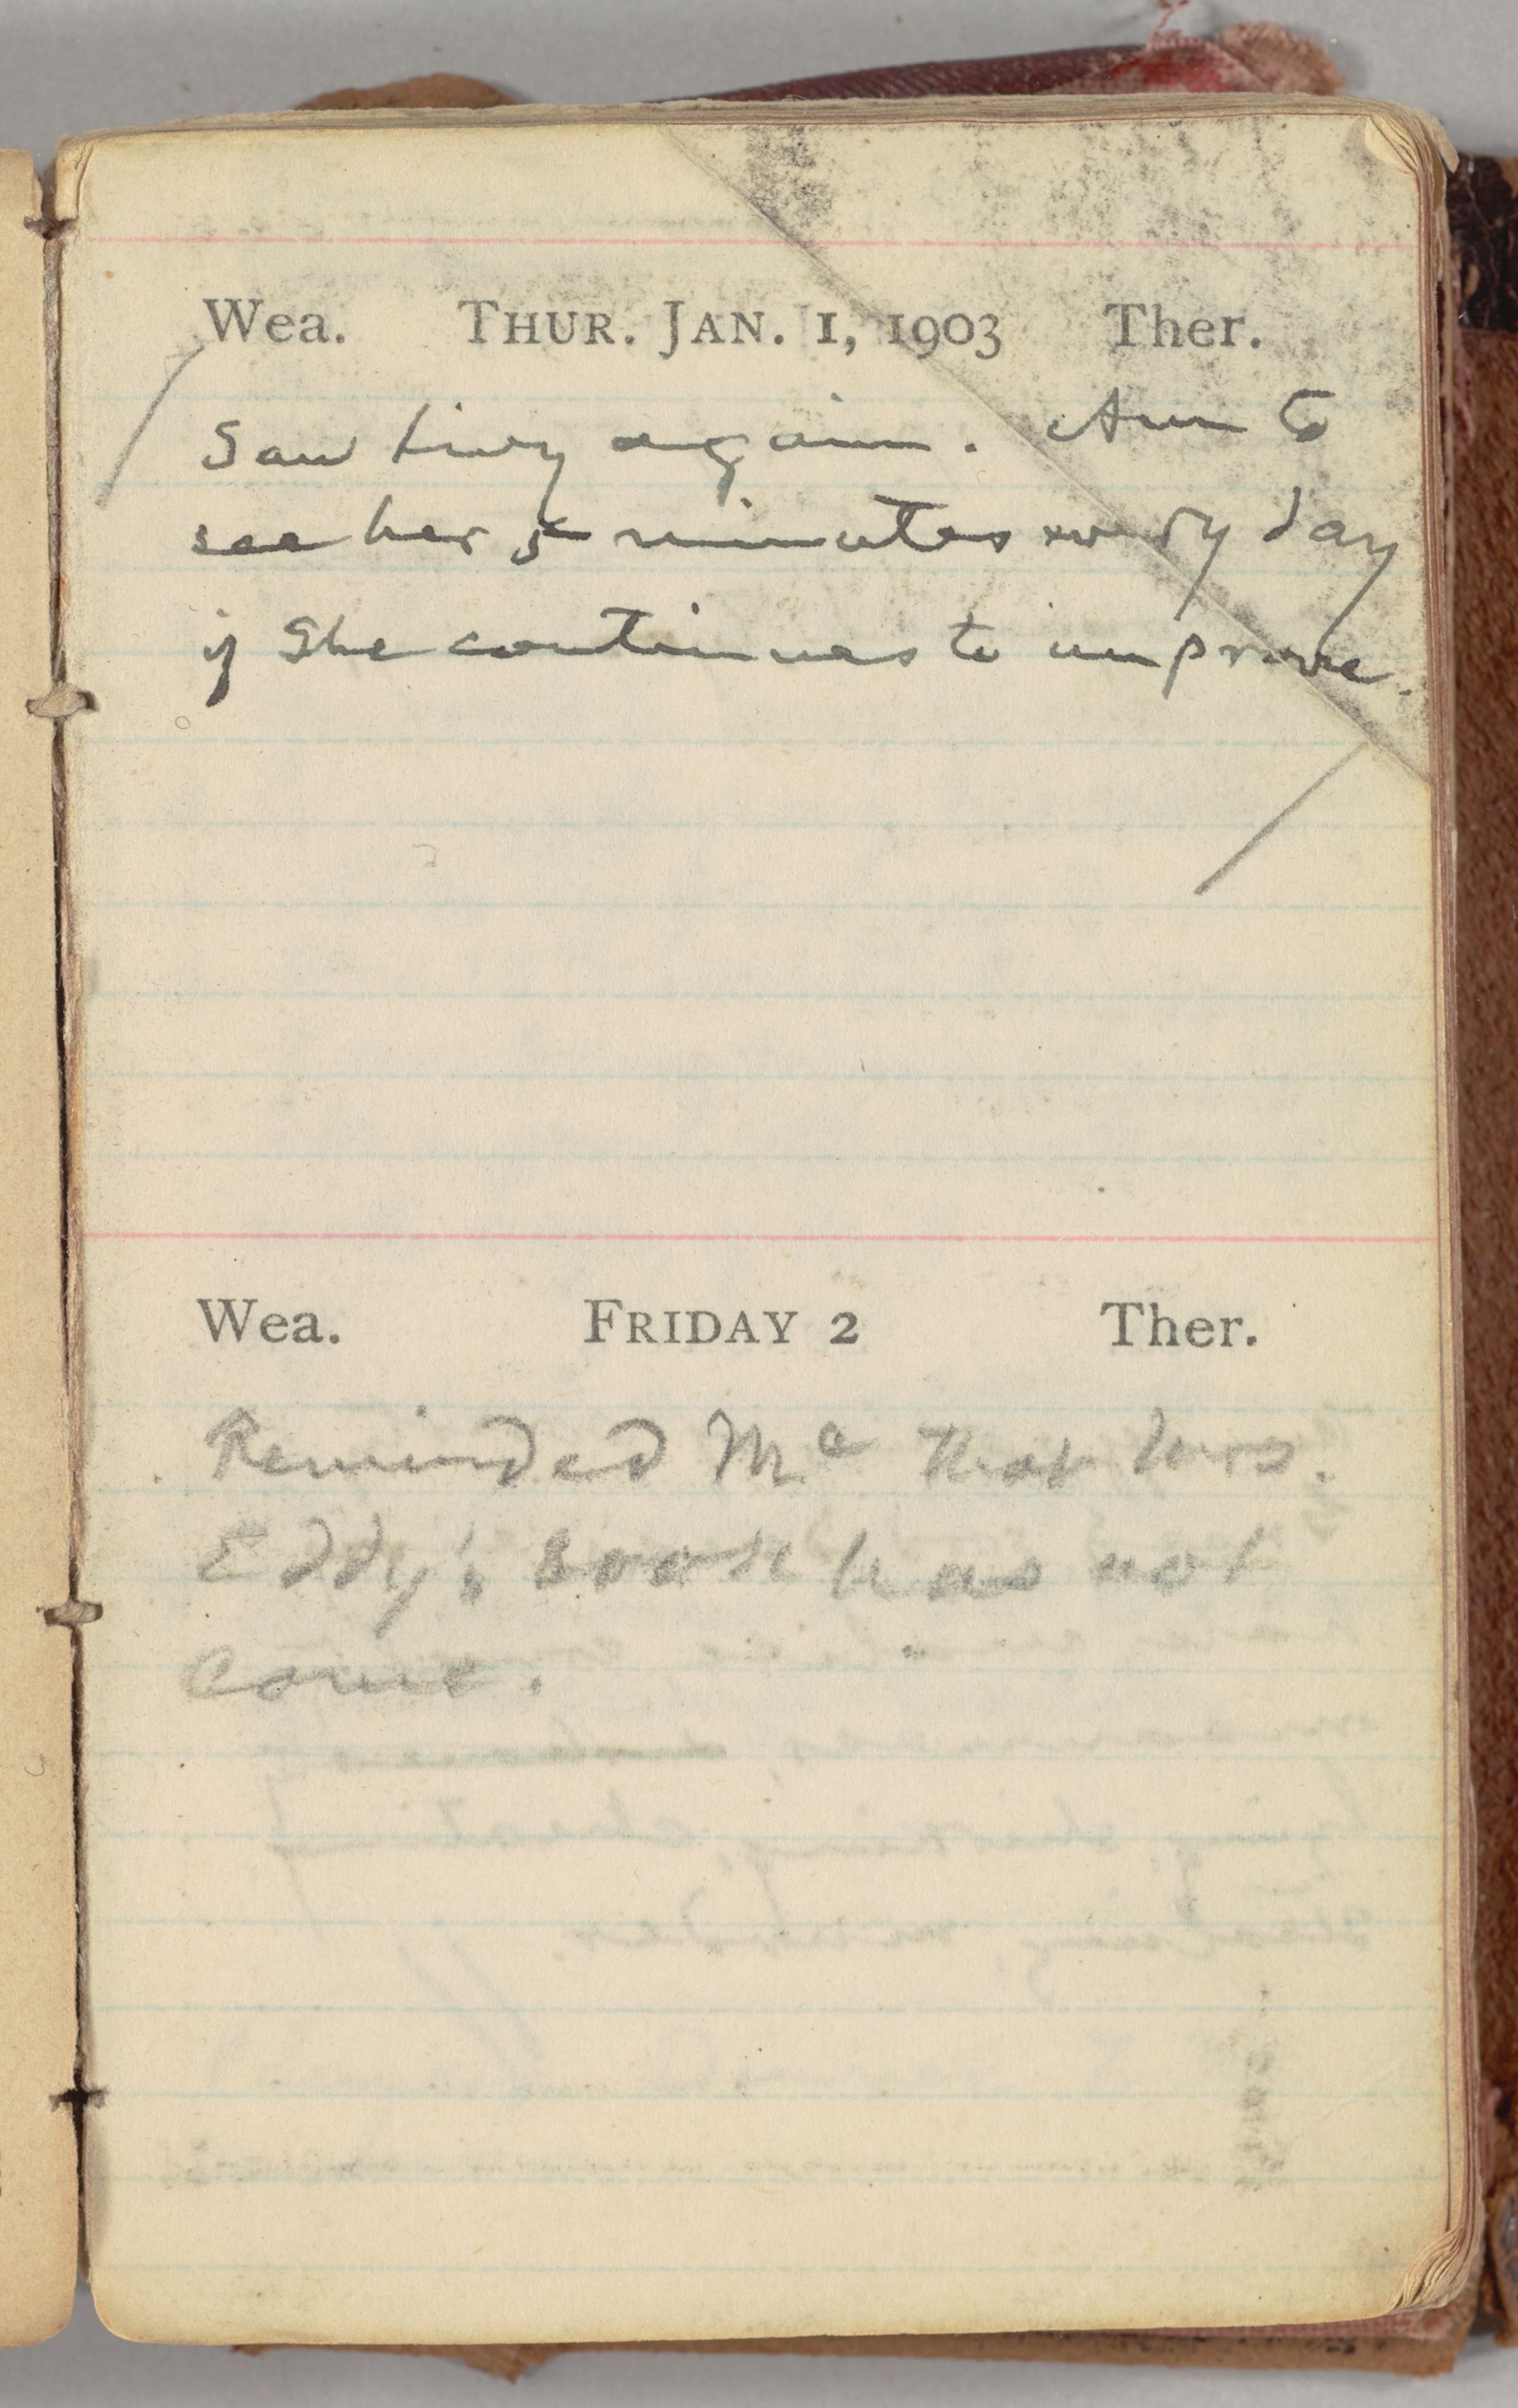 Wea. THUR. JAN. 1, 1903 Ther.
Saw Livy again. Am to
see her 5 minutes every day
if she continues to improve.
Wea. FRIDAY 2 Ther.
Reminded Mc that Mrs.
Eddy's book has not
come.